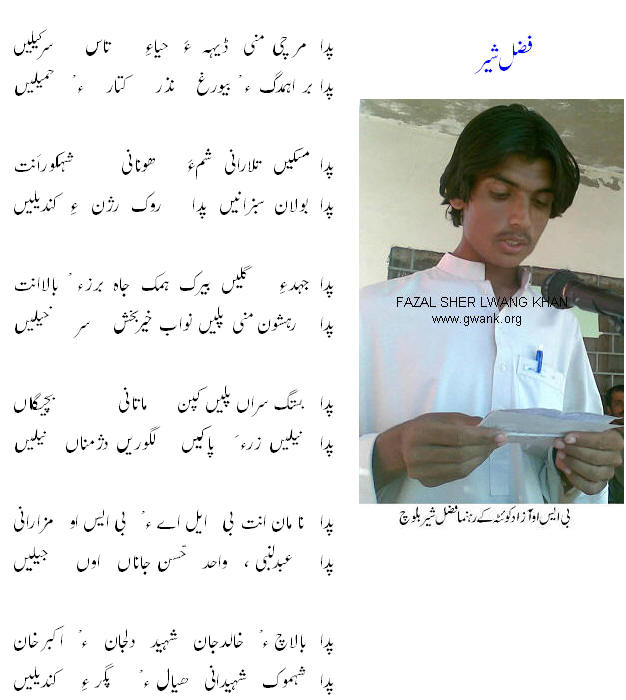 فضل شیر
پدا مرچی منی ڈیہہ ءَ حیاءِ تاس سرکیلیں
پدا بر اہمدگ ءُ بیورغ نذر کتار ءُ حمیلیں
پدا مسکیں تلارانی شمءَ ھونانی شہکوراَنت
پدا بولان سبزانیں پدا روک رژن ءِ کندیلیں
پدا جہدءِ گلیں بیرک ہمک جاہ برزءُ بالاانت
پدا رہشون منی پلیں نواب خیربخش سر
پدا بستگ سراں پلیں کپن ماتانی بچیگاں
پدا نیلیں زرءَ پاکیں لگوریں دژمناں نیلیں
پدا نامان انت بی ایل اے ءُ بی ایس او مزارانی
پدا عبدلنبی، واحد حسن جاناں اوں جیلیں
پدا بالاچ ءُ خالدجان شہید دلجان ءُ اکبرخان
پدا شہموک شہیدانی ھیال ءُ پگر ءِ کندیلیں
FAZAL SHER LWANG KHAN
www.gwank.org
بی ایس او آزاد کوئٹہ کے رہنما فضل شیر بلوچ